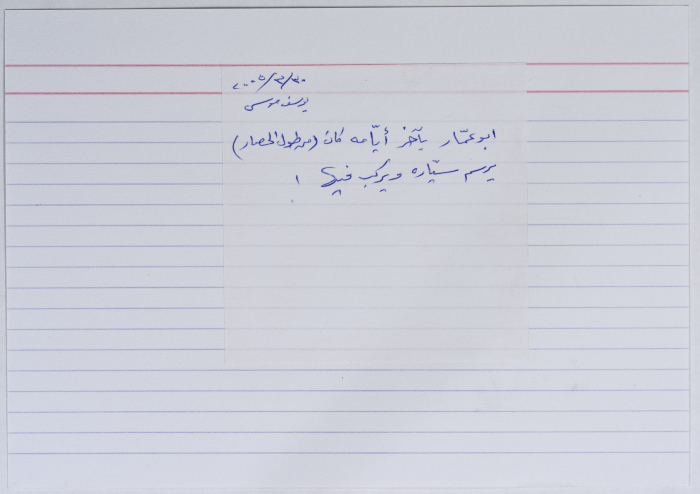 ٢٠٠٥/٣/٣٠
يوسف موسى
ابو عمّار بآخر أيّامه كان (من طول الحصار)
يرسم سيّاره ويركب فيها !